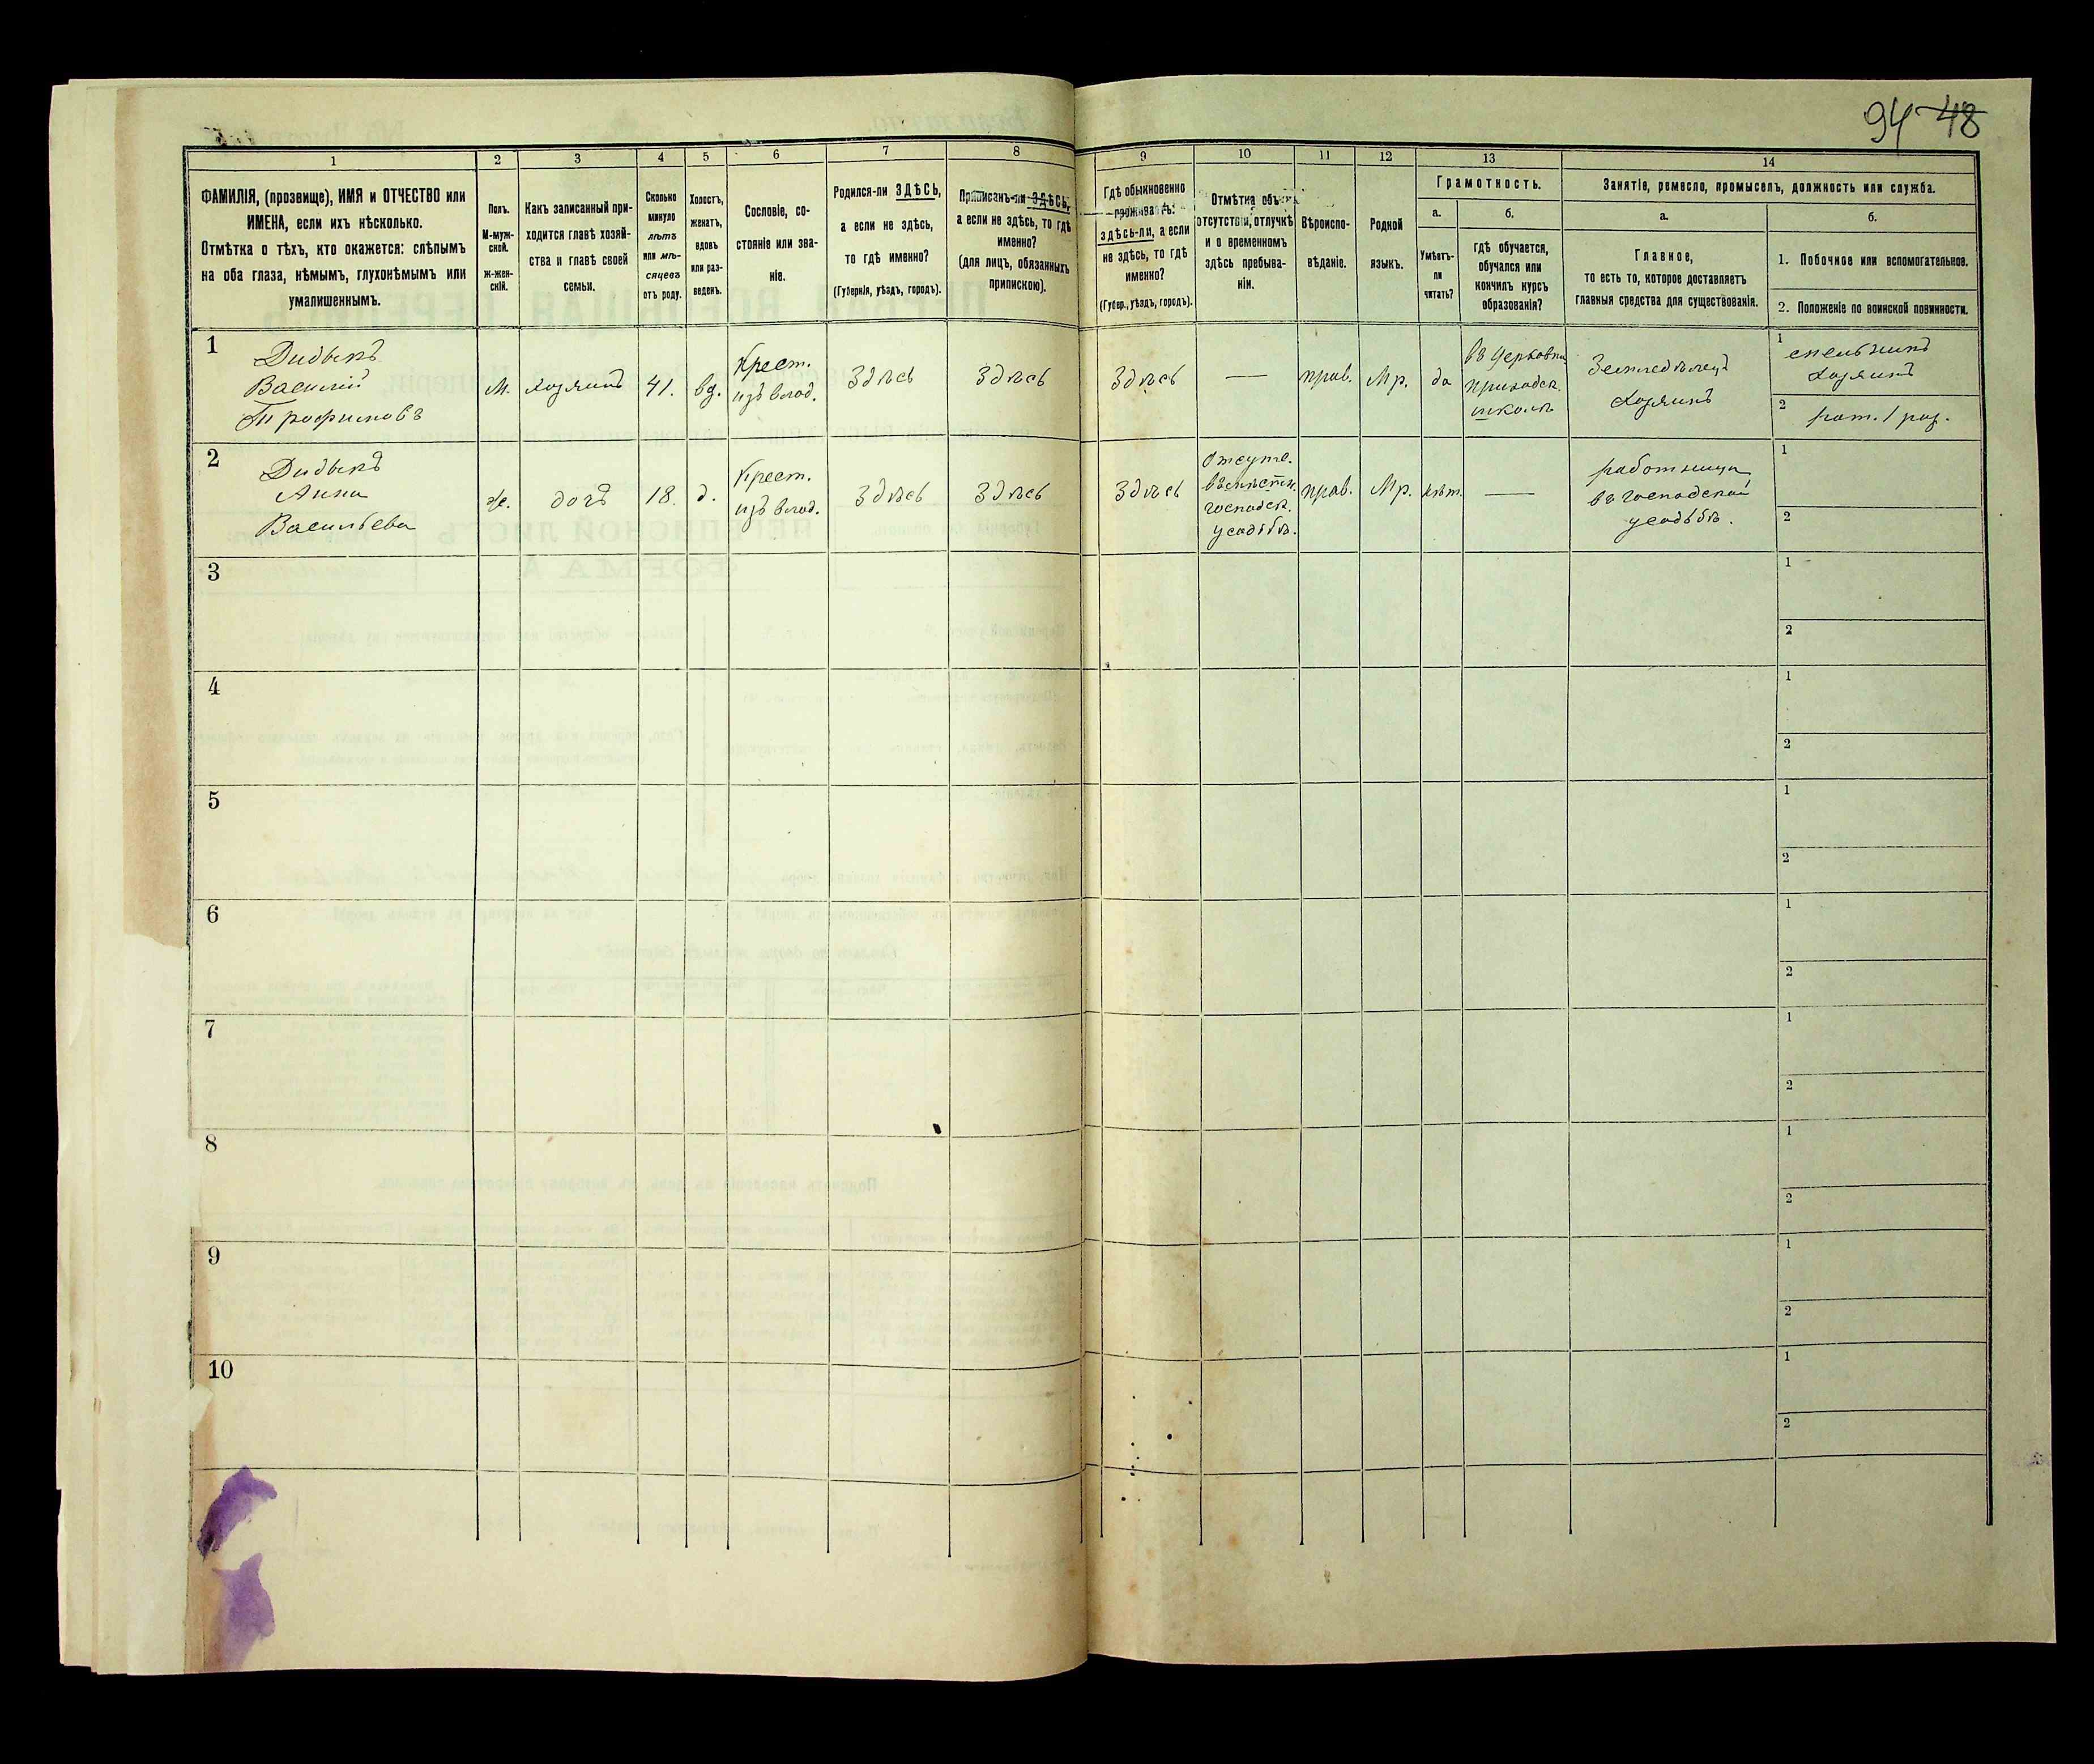 94 48
1
ФАМИЛІЯ, (прозвище), ИМЯ и ОТЧЕСТВО или
ИМЕНА, если ихъ нѣсколько.
Отмѣтка о тѣхъ, кто окажется: слѣпымъ
на оба глаза, нѣмымъ, глухонѣмымъ или
умалишеннымъ.
2
Полъ.
М-муж-
ской.
Ж-жен-
скій.
3
Какъ записанный при-
ходится главѣ хозяй-
ства и главѣ своей
семьи.
4
Сколько
минуло
лѣтъ
или мѣ-
сяцевъ
отъ роду.
5
Холостъ,
женатъ,
вдовъ
или раз-
веденъ.
6
Сословіе, со-
стояніе или зва-
ніе.
7
Родился-ли ЗДѢСЬ,
а если не здѣсь,
то гдѣ именно?
(Губернія, уѣздъ, городъ).
8
Приписанъ-ли ЗДѢСЬ,
а если не здѣсь, то гдѣ
именно?
(для лицъ, обязанныхъ
припискою).
9
Гдѣ обыкновенно
проживаетъ:
здѣсь-ли, а если
не здѣсь, то гдѣ
именно?
(Губер., уѣздъ, городъ).
10
Отмѣтка объ
отсутствіи, отлучкѣ
и о временномъ
здѣсь пребыва-
ніи.
11
Вѣроиспо-
вѣданіе.
12
Родной
языкъ.
13
Грамотность.
а.
Умѣетъ-
ли
читать?
б.
гдѣ обучается,
обучался или
кончилъ курсъ
образованія?
14
Занятіе, ремесло, промыселъ, должность или служба.
а.
Главное,
то есть то, которое доставляетъ
главныя средства для существованія.
б.
1. Побочное или вспомогательное.
2. Положеніе по воинской повинности.
1
Дидыкъ
Василій
Трофимовъ
М.
хозяинъ
41.
вд.
Крест.
изъ влад.
Здѣсь
Здѣсь
Здѣсь
—
прав.
Мр.
да
въ Церковно
приходск.
школѣ
Земледѣлецъ
Хозяинъ
1
мельникъ
Хозяинъ
2
рат. 1 раз.
2
Дидыкъ
Анна
Васильева
ж.
дочъ
18.
д.
Крест.
изъ влад.
Здѣсь
Здѣсь
Здѣсь
Отсутв.
въ мѣстн.
господск.
усадьбѣ.
прав.
Мр.
нѣт.
—
работница
въ господской
усадьбѣ.
1
2
3
1
2
4
1
2
5
1
2
6
1
2
7
1
2
8
1
2
9
1
2
10
1
2